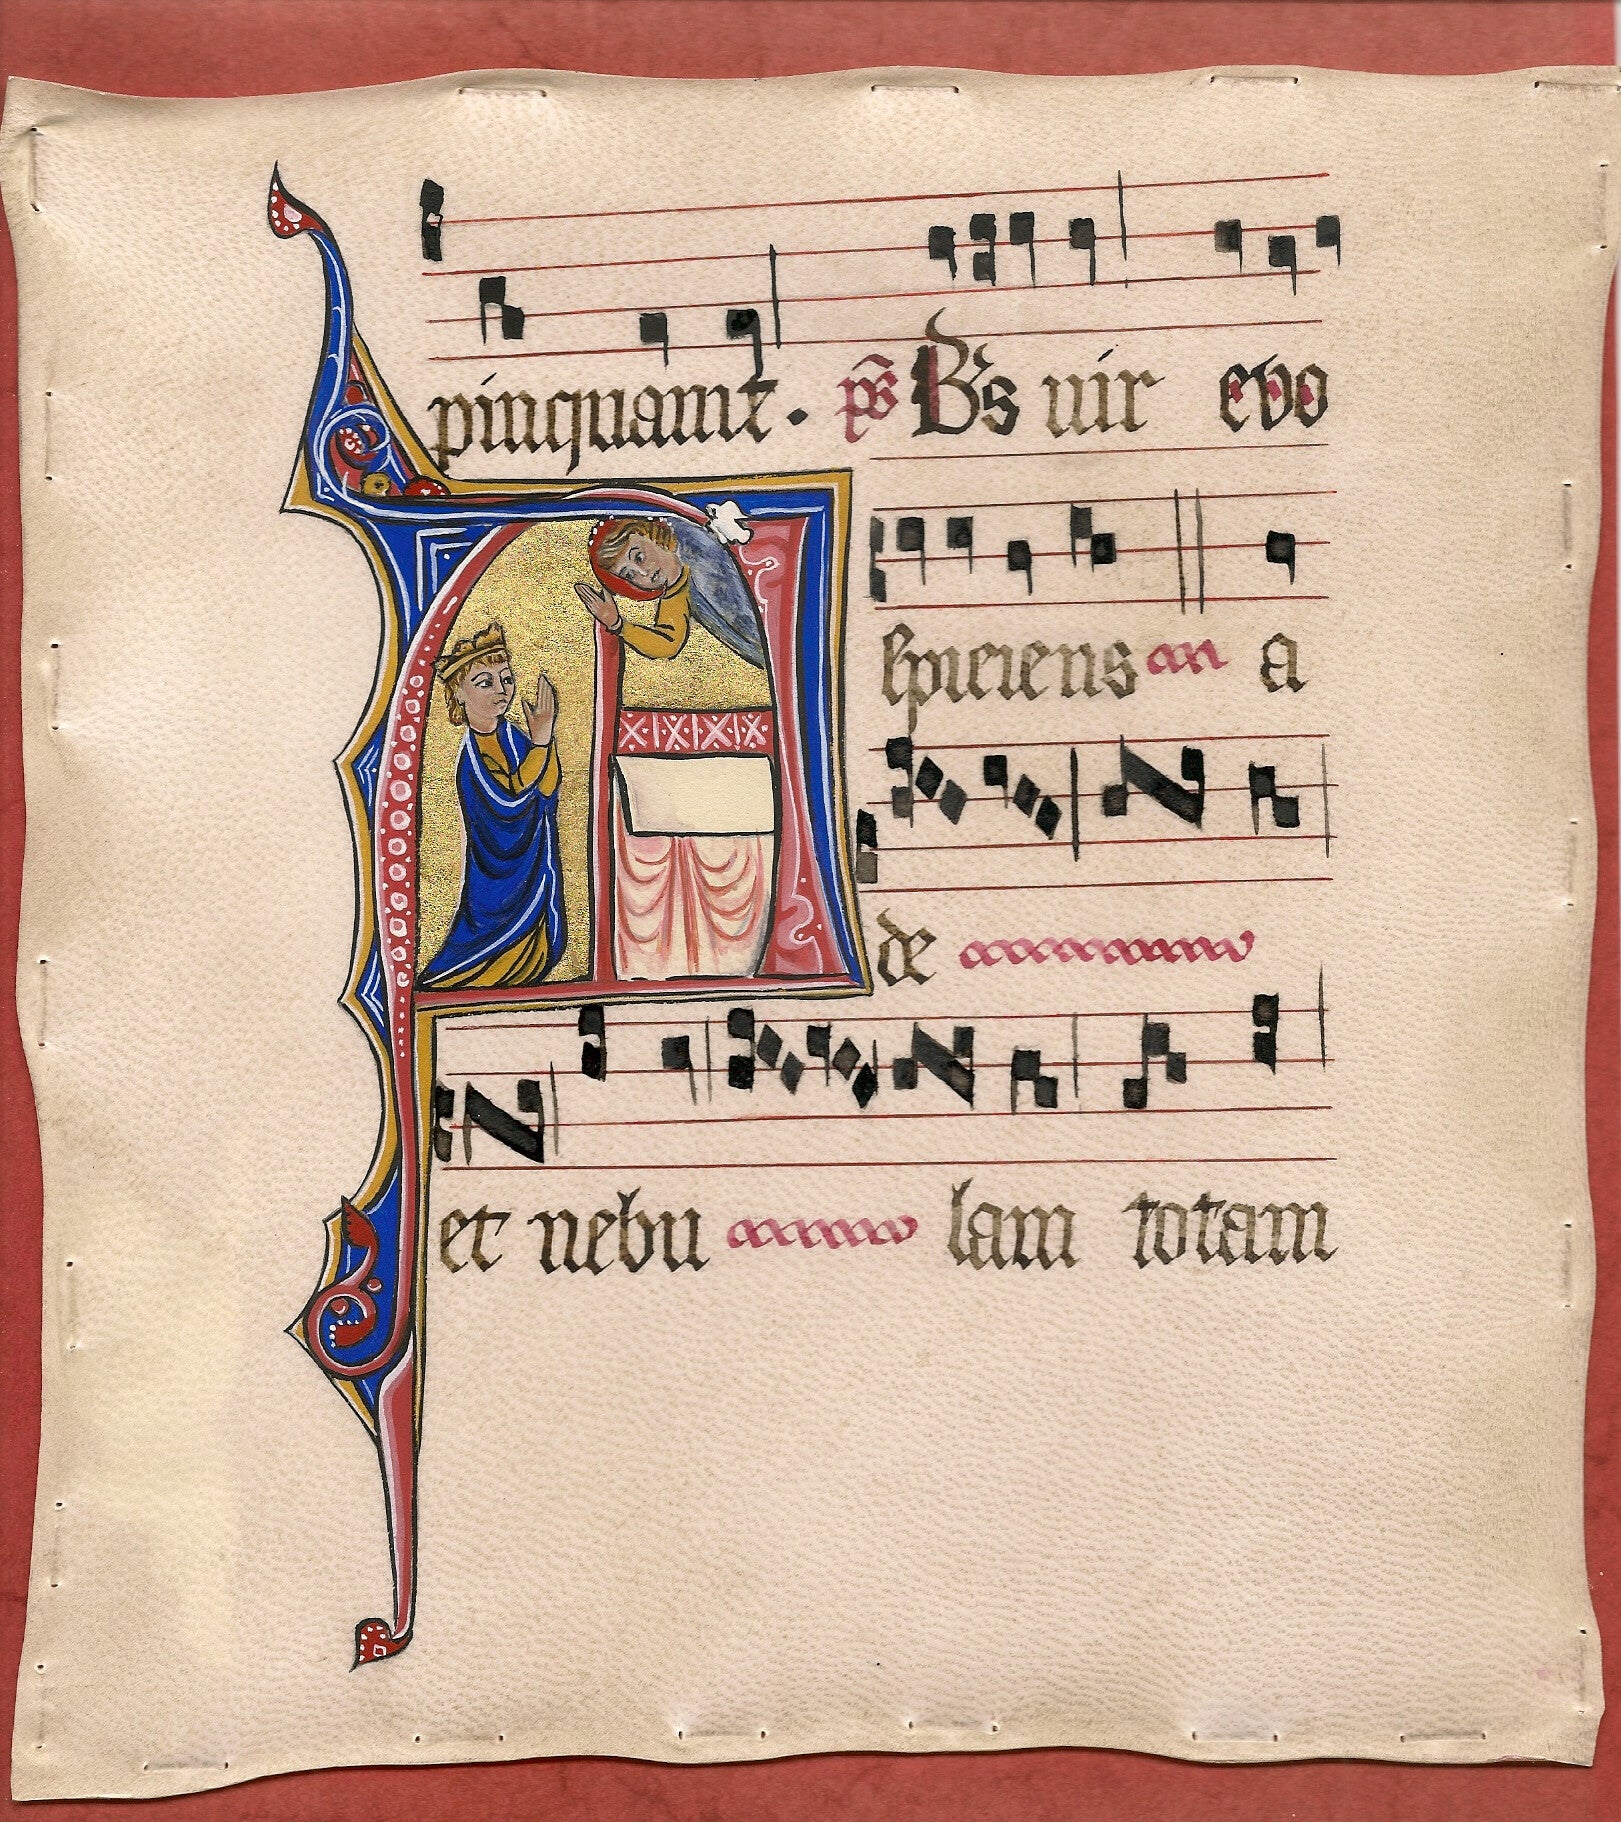 pinquauit. ps Bs uir evo
Aspiciens a
de
et nebu lam totam